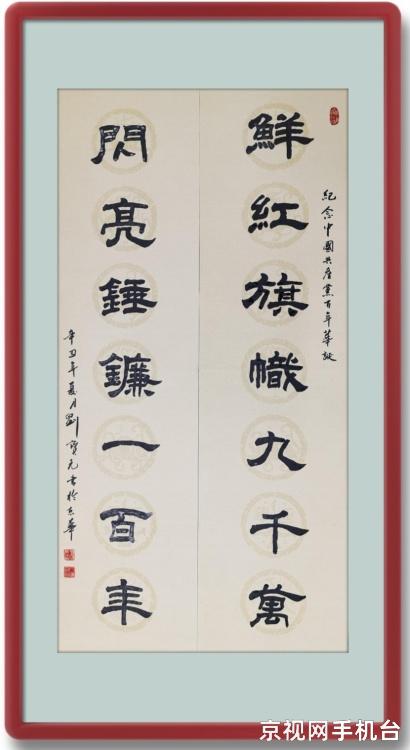 紀念中國共產黨百年華誕
鮮紅旗幟九千萬
閃亮錘鐮一百年
辛丑年夏月劉寶元書於京華
京视网手机台